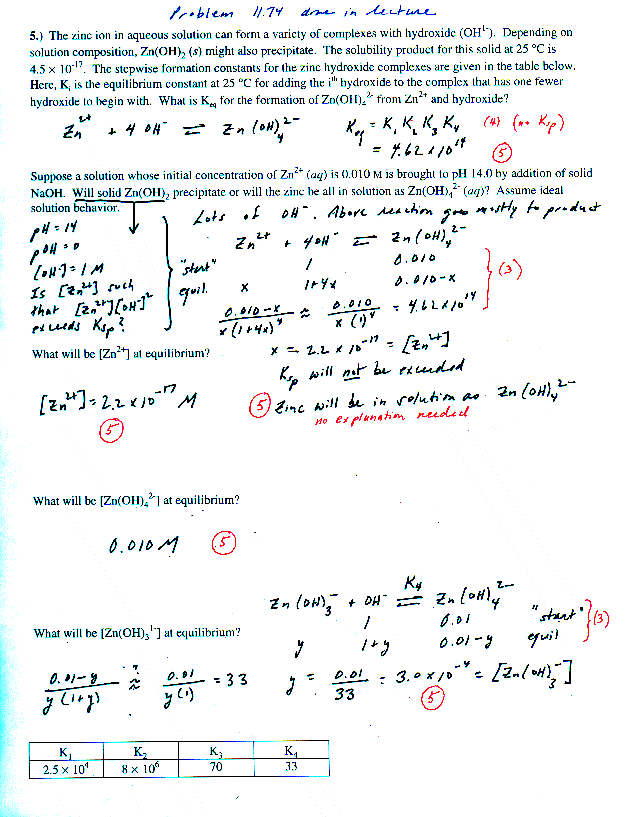 Problem 11.74 done in lecture
5.) The zinc ion in aqueous solution can form a variety of complexes with hydroxide (OH¹⁻). Depending on
solution composition, Zn(OH)₂ (s) might also precipitate. The solubility product for this solid at 25 °C is
4.5 × 10⁻¹⁷. The stepwise formation constants for the zinc hydroxide complexes are given in the table below.
Here, Kᵢ is the equilibrium constant at 25 °C for adding the iᵗʰ hydroxide to the complex that has one fewer
hydroxide to begin with. What is K_eq for the formation of Zn(OH)₄²⁻ from Zn²⁺ and hydroxide?
Zn²⁺ + 4 OH⁻ ⇌ Zn(OH)₄²⁻ K_eq = K₁ K₂ K₃ K₄ (4) (no Ksp)
= 4.62 × 10¹⁴ (5)
Suppose a solution whose initial concentration of Zn²⁺ (aq) is 0.010 M is brought to pH 14.0 by addition of solid
NaOH. Will solid Zn(OH)₂ precipitate or will the zinc be all in solution as Zn(OH)₄²⁻ (aq)? Assume ideal
solution behavior.
Lots of OH⁻. Above reaction goes mostly to product
pH = 14
pOH = 0
[OH⁻] = 1 M
Is [Zn²⁺] such
that [Zn²⁺][OH⁻]²
exceeds Ksp?
Zn²⁺ + 4OH⁻ ⇌ Zn(OH)₄²⁻
"start" 1 0.010
equil. x 1+4x 0.010-x (3)
0.010-x / x(1+4x)⁴ ≈ 0.010 / x(1)⁴ = 4.62 × 10¹⁴
x = 2.2 × 10⁻¹⁷ = [Zn²⁺]
Ksp will not be exceeded
(5) Zinc will be in solution as Zn(OH)₄²⁻
no explanation needed
What will be [Zn²⁺] at equilibrium?
[Zn²⁺] = 2.2 × 10⁻¹⁷ M
(5)
What will be [Zn(OH)₄²⁻] at equilibrium?
0.010 M (5)
Zn(OH)₃⁻ + OH⁻ K₄ ⇌ Zn(OH)₄²⁻
1 0.01 "start"
y 1+y 0.01-y equil (3)
What will be [Zn(OH)₃¹⁻] at equilibrium?
0.01-y / y(1+y) ≈? 0.01 / y(1) = 33 y = 0.01 / 33 = 3.0 × 10⁻⁴ = [Zn(OH)₃⁻]
(5)
K₁ K₂ K₃ K₄
2.5 × 10⁴ 8 × 10⁶ 70 33